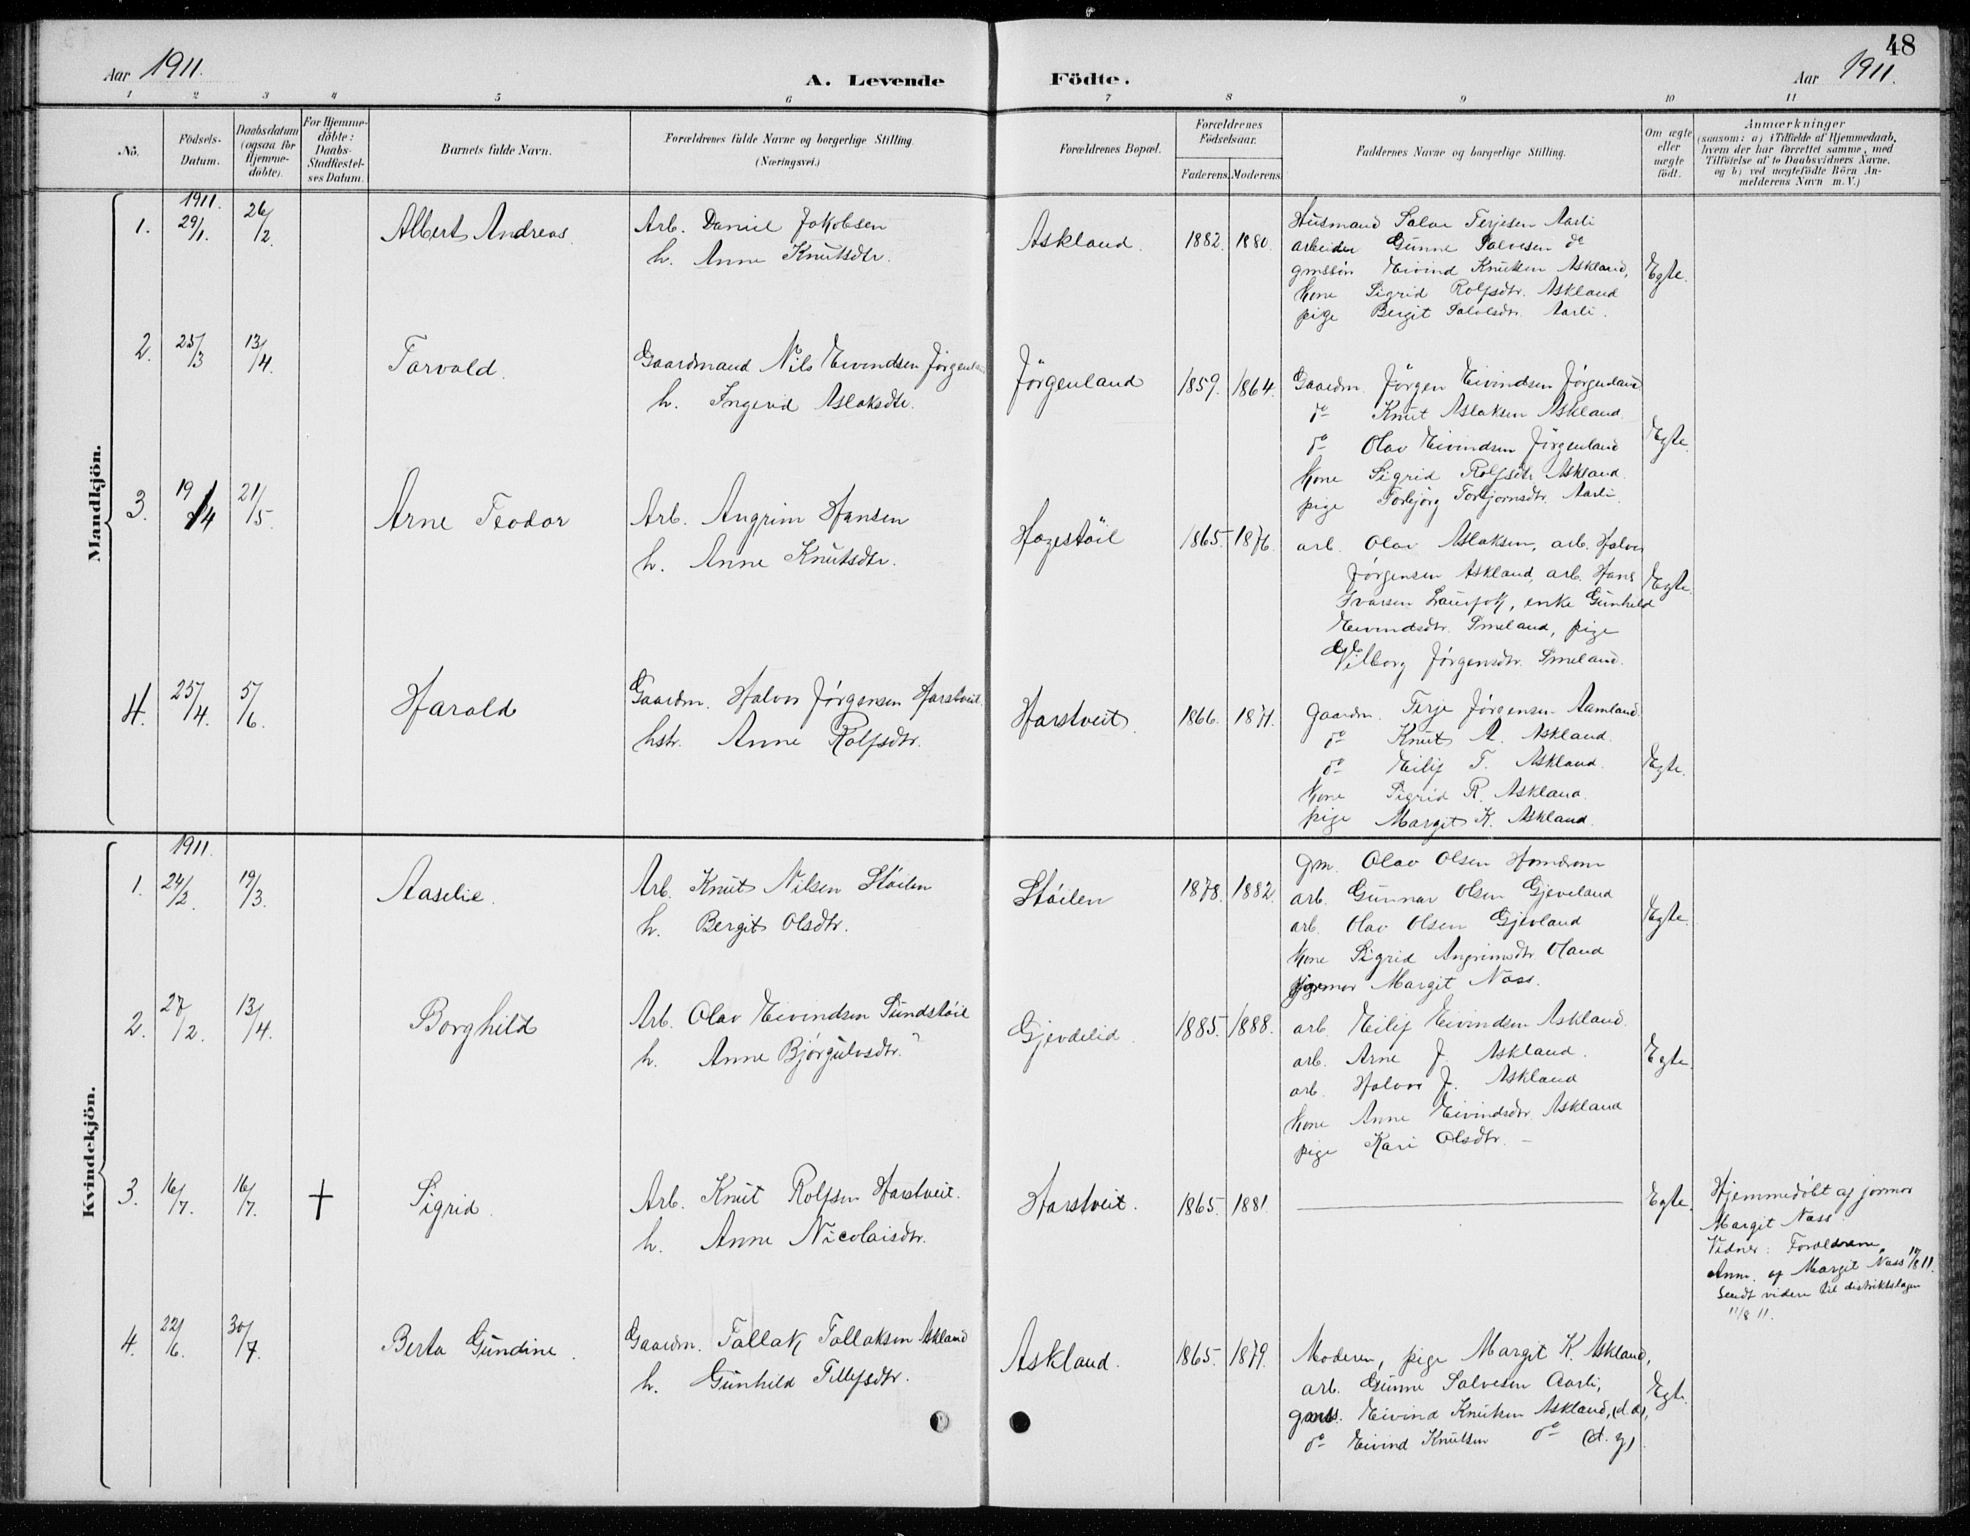 48
Aar 1911.
A. Levende Födte.
Aar 1911.
1 2 3 4 5 6 7 8 9 10 11
No.
Födsels-
Datum.
Daabsdatum
(ogsaa for
Hjemme-
döbte).
For Hjemme-
döbte:
Daabs-
Stadfæstel-
ses Datum.
Barnets fulde Navn.
Forældrenes fulde Navne og borgerlige Stilling.
(Næringsvei.)
Forældrenes Bopæl.
Forældrenes
Födselsaar.
Faderens. Moderens.
Faddernes Navne og borgerlige Stilling.
Om ægte
eller
uægte
födt.
Anmærkninger
(saasom: a) i Tilfælde af Hjemmedaab,
hvem der har forrettet samme, med
Tilföielse af to Daabsvidners Navne.
og b) ved uægtefödte Börn An-
melderens Navn m. V.)
Mandkjön.
1911.
1. 29/1. 26/2. Albert Andreas.
Arb. Daniel Jakobsen
h. Anne Knutsdtr.
Askland. 1882. 1880.
Husmand Salve Terjesen Aarli
arbeider Gunne Salvesen do
gmssön Eivind Knutsen Askland,
kone Sigrid Rolfsdtr. Askland
pige Bergit Salvesdtr. Aarli.
Egte.
2. 25/3 13/4. Torvald.
Gaardmand Nils Eivindsen Jörgenland
h. Ingerid Aslaksdtr.
Jörgenland 1859. 1864.
Gaardm. Jörgen Eivindsen Jörgenland
do Knut Aslaksen Askland.
do Olav Eivindsen Jörgenland
kone Sigrid Rolfsdtr. Askland.
pige Torbjörg Torbjörnsdtr. Aarli.
Egte.
3. 19/4 21/5. Arne Teodor
Arb. Angrim Hansen
h. Anne Knutsdtr.
Hagestöil 1865. 1876.
arb. Olav Aslaksen, arb. Halvor
Jörgensen Askland, arb. Hans
Ivarsen, enke Gunhild
Eivindsdtr. Smeland, pige
Vilborg Jörgensdtr. Smeland.
Egte.
4. 25/4. 5/6. Harald
Gaardm. Halvor Jörgensen Harstveit.
hstr. Anne Rolfsdtr.
Harstveit. 1866. 1871.
Gaardm. Terje Jörgensen Aamland.
do Knut A. Askland.
do Eilif T. Askland.
kone Sigrid R. Askland.
pige Margit K. Askland.
Egte.
Kvindekjön.
1911.
1. 24/2. 19/3. Aaselie.
Arb. Knut Nilsen Stöilen
h. Bergit Olsdtr.
Stöilen 1878. 1882.
gm. Olav Olsen Homdrom
arb. Gunnar Olsen Gjeveland
arb. Olav Olsen Gjevland
kone Sigrid Angrimsdtr. Oland
jormor Margit Nass.
Egte.
2. 27/2. 13/4. Borghild
Arb. Olav Eivindsen Sundstöil
h. Anne Björgulvsdtr.
Gjevdelid. 1885. 1888.
arb. Eilif Eivindsen Askland.
arb. Arne J. Askland.
arb. Halvor J. Askland
kone Anne Eivindsdtr. Askland
pige Kari Olsdtr. –
Egte.
3. 16/7. 16/7. † Sigrid.
Arb. Knut Rolfsen Harstveit.
h. Anne Nicolaisdtr.
Harstveit. 1865. 1881.
Egte.
Hjemmedöbt af jormor
Margit Nass.
Vidner: Forældrene.
Anm. af Margit Nass 10/8 11.
Sendt videre til distriktslægen
11/8 11.
4. 22/6. 30/7. Berta Gundine.
Gaardm. Tallak Tallaksen Askland
h. Gunhild Tellefsdtr.
Askland. 1865. 1879.
Moderen, pige Margit K. Askland,
arb. Gunne Salvesen Aarli,
gms. Eivind Knutsen Askland, (d. æ),
do Eivind Knutsen do (d. y).
Egte.